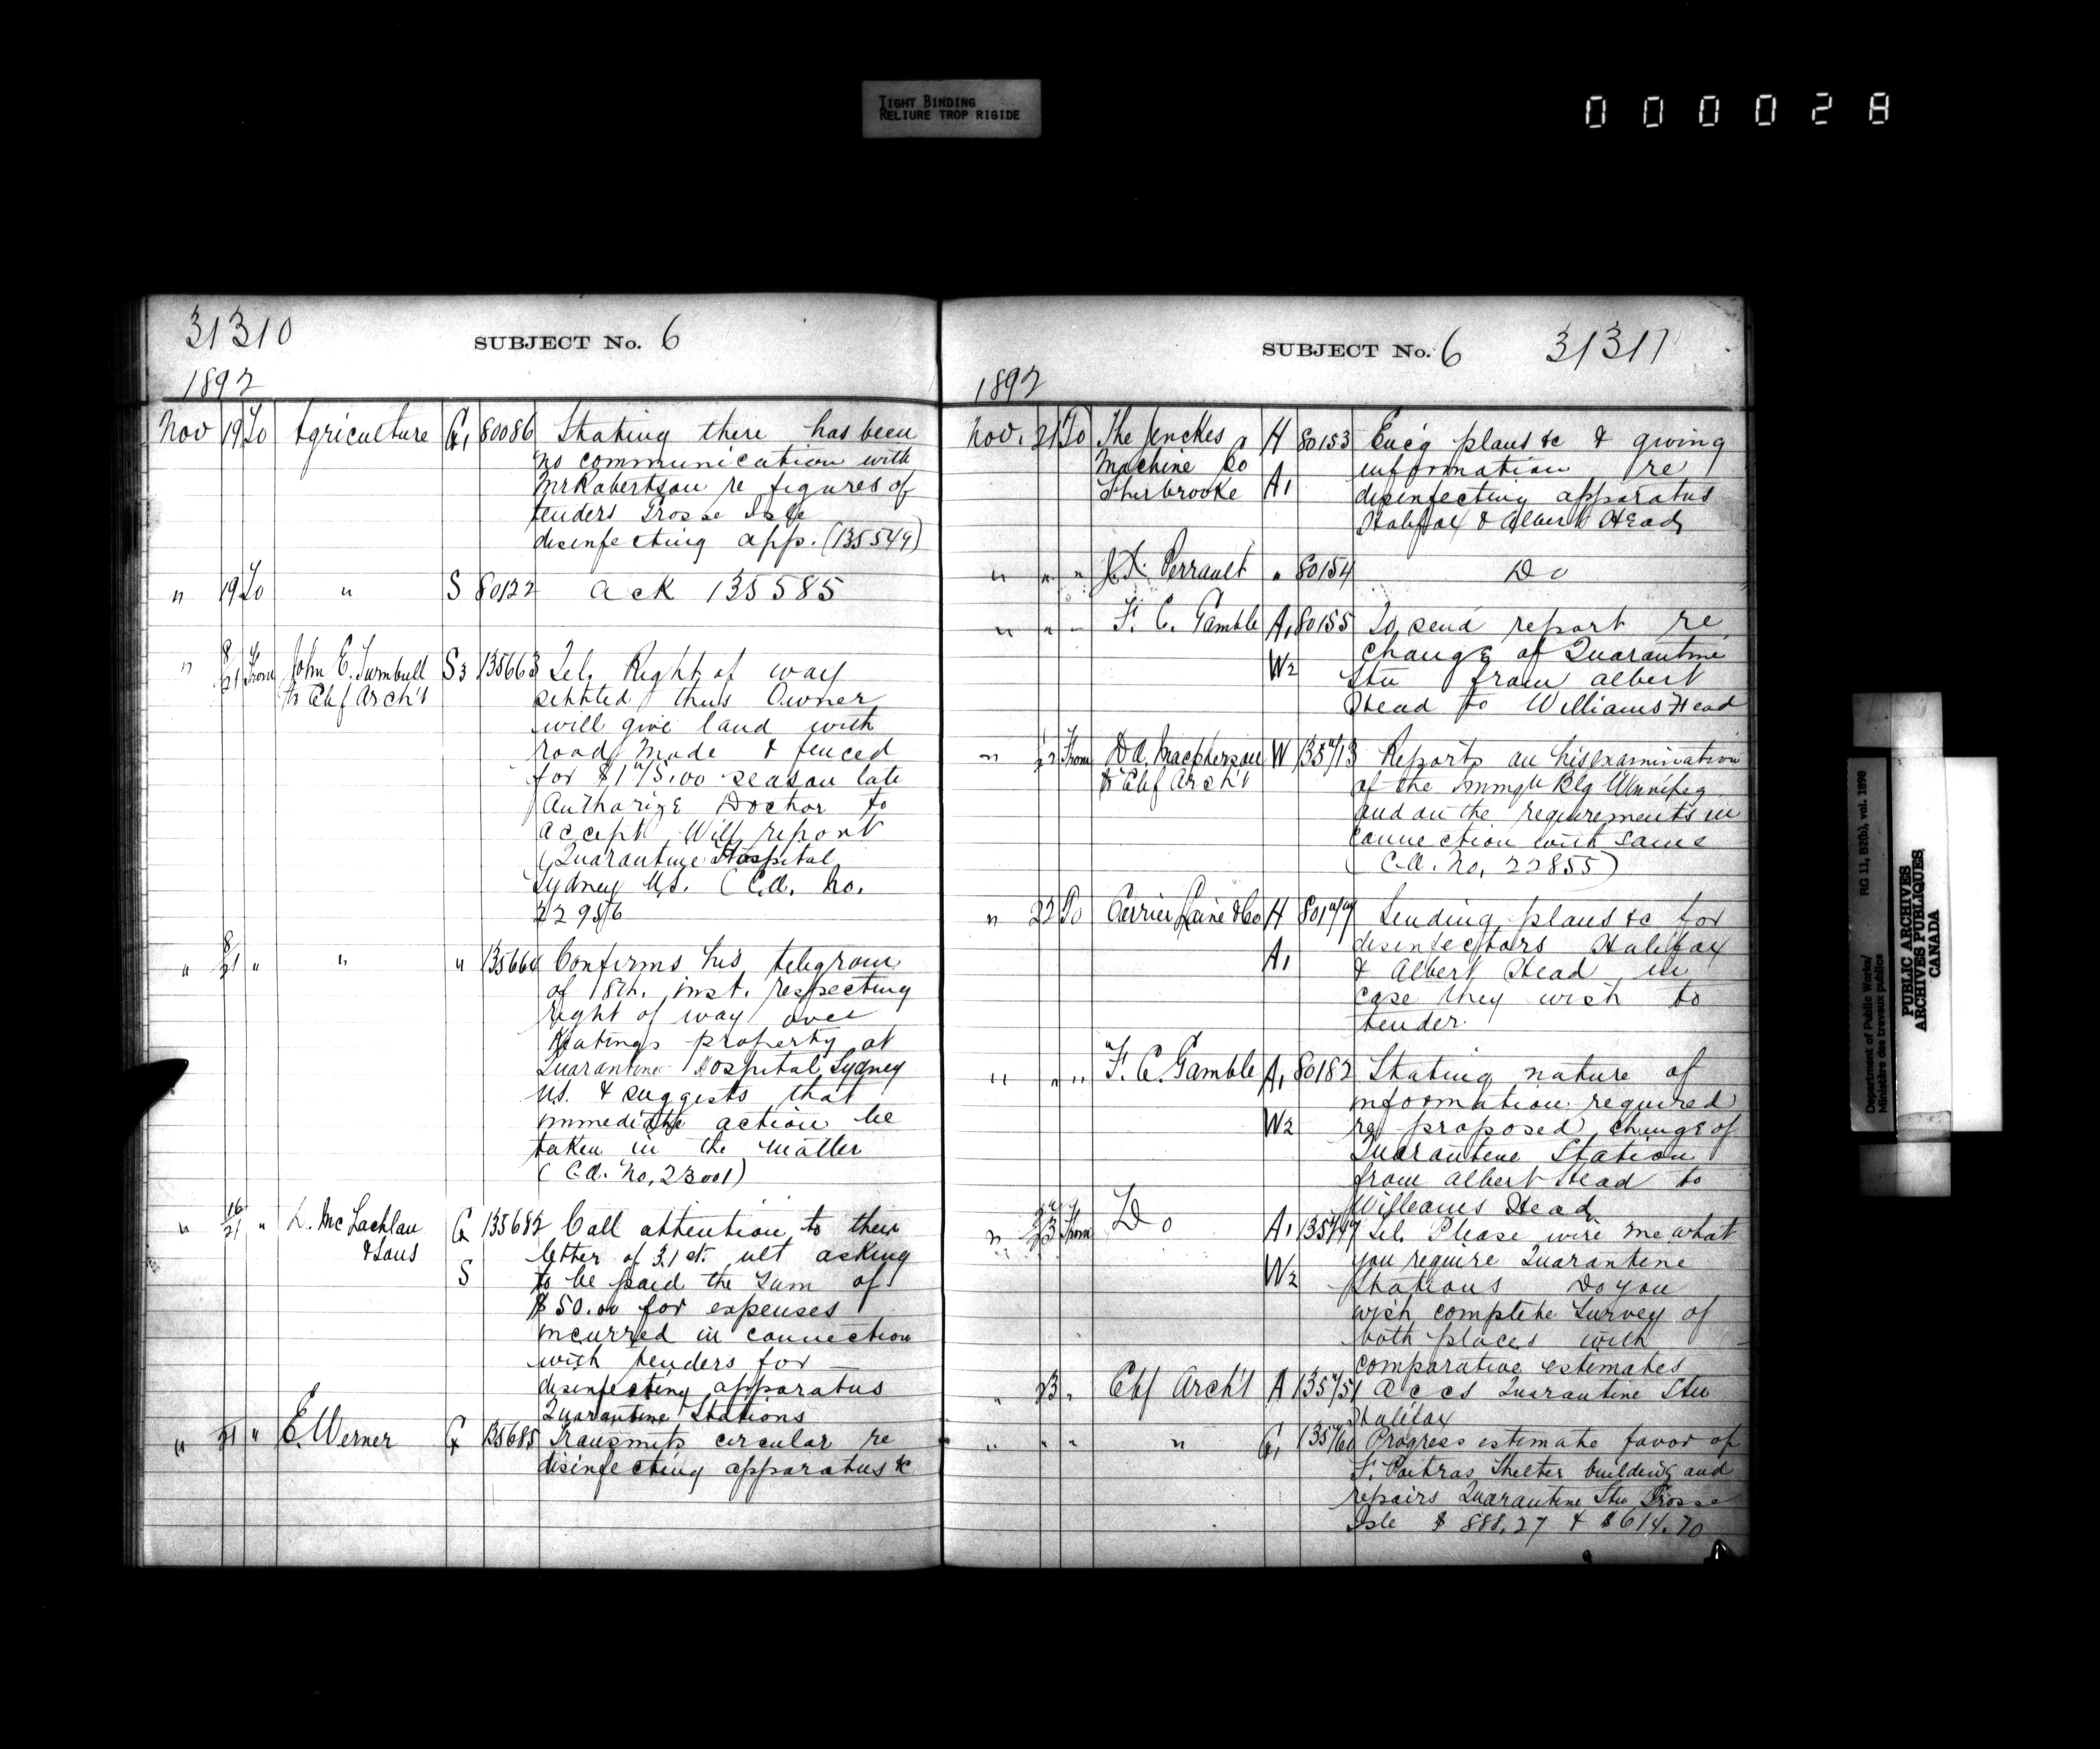 TIGHT BINDING
RELIURE TROP RIGIDE
000028
31310
SUBJECT No. 6
1892
Nov 19 To Agriculture G1 80086 Stating there has been
no communication with
Mr Robertson re figures of
tenders Grosse Isle
disinfecting app. (135549)
" 19 To " S 80122 ack 135585
" 18/21 From John E. Turnbull S3 135663 Tel. Right of way
to Chf Arch't settled thus Owner
will give land with
road made & fenced
for $175.00 season late
Authorize Doctor to
accept Will report
(Quarantine Hospital
Sydney N.S. (C.A. No.
22956
" 18/21 " " " 135664 Confirms his telegram
of 18th. inst. respecting
right of way over
Keatings property at
Quarantine Hospital Sydney
N.S. & suggests that
immediate action be
taken in the matter
(C.A. No. 23001)
" 16/21 " L. McLachlan G 135682 Call attention to their
& Sons letter of 31st. ult asking
S to be paid the sum of
$50.00 for expenses
incurred in connection
with tenders for
disinfecting apparatus
Quarantine Stations
" 21 " E. Werner G 135685 Transmits circular re
disinfecting apparatus &c
SUBJECT No. 6 31311
1892
Nov. 21 To The Jenckes H 80153 Enc'g plans &c & giving
Machine Co information re
Sherbrooke A1 disinfecting apparatus
Halifax & Albert Head
" " " J.X. Perrault " 80154 Do
" " " F. C. Gamble A1 80155 To send report re
change of Quarantine
W2 Stn from Albert
Head to Williams Head
" 22 From D.A. Macpherson W 135713 Reports on his examination
to Chf Arch't of the Immgn Blg Winnipeg
and on the requirements in
connection with same
(C.A. No. 22855)
" 22 To Carrier Laine & Co H 80177 Sending plans &c for
disinfectors Halifax
A1 & Albert Head in
case they wish to
tender.
" " " F. C. Gamble A1 80182 Stating nature of
information required
W2 re proposed change of
Quarantine Station
from Albert Head to
Williams Head
" 23 From Do A1 135747 Tel. Please wire me what
you require Quarantine
W2 Stations Do you
wish complete survey of
both places with
comparative estimates
" 23 " Chf Arch't A 135751 Accs Quarantine Stn
Halifax
" " " " G1 135760 Progress estimate favor of
F. Poitras Shelter building and
repairs Quarantine Stn Grosse
Isle $888.27 & $614.70
Department of Public Works/ RG 11, B2(b), vol. 1898
Ministère des travaux publics
PUBLIC ARCHIVES
ARCHIVES PUBLIQUES
CANADA